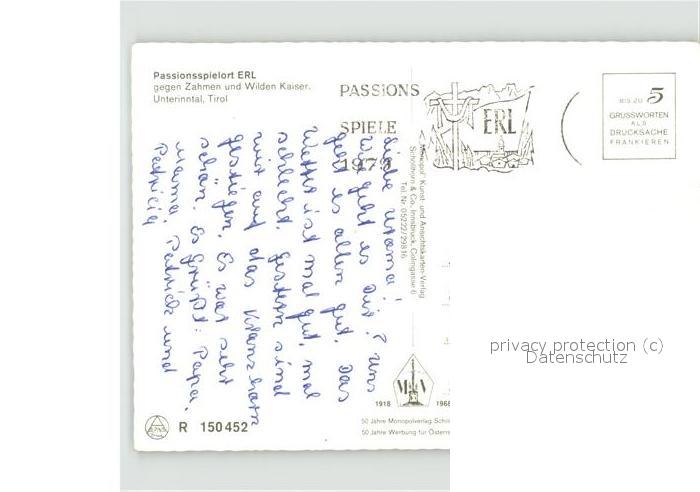 Passionsspielort ERL
gegen Zahmen und Wilden Kaiser.
Unterinntal, Tirol
PASSIONS
SPIELE
1979
ERL
BIS ZU 5
GRUSSWORTEN
ALS
DRUCKSACHE
FRANKIEREN
Liebe Uroma!
Wie geht es Dir? Uns
geht es allen gut. Das
Wetter ist mal gut, mal
schlecht. Gestern sind
wir auf das Kranzhorn
gestiegen. Es war sehr
schön. Es grüßt: Papa,
Mama, Patrick und
Patricia
"Monopol" Kunst- und Ansichtskarten-Verlag
Schöllhorn & Co., Innsbruck, Colingasse 6
Tel. Nr. 05222/29816
M V
1918 1968
50 Jahre Monopolverlag
50 Jahre Werbung für
R 150452
privacy protection (c)
Datenschutz